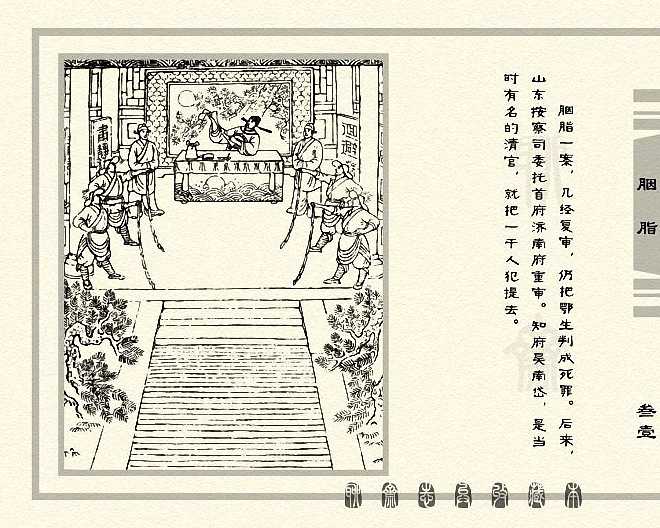 胭脂
叁壹
胭脂一案，几经复审，仍把鄂生判成死罪。后来，
山东按察司委托首府济南府重审。知府吴南岱，是当
时有名的清官，就把一干人犯提去。
肃静